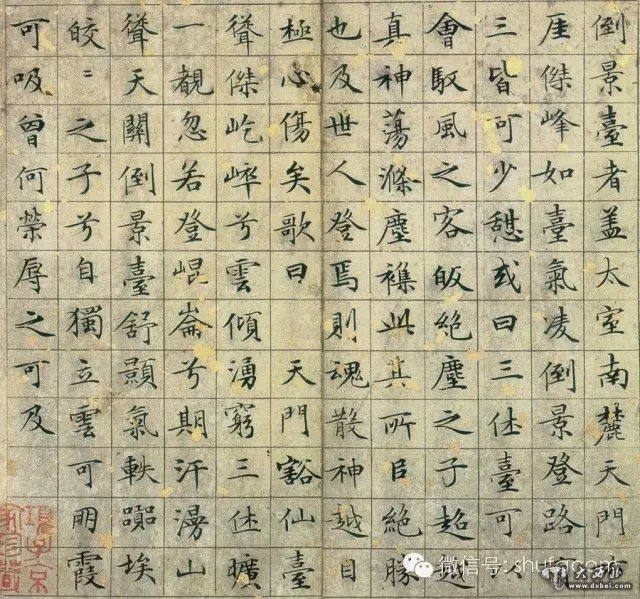 倒景臺者盖太室南麓天門
厓傑峰如臺氣凌倒景登路
三皆可少憩或曰三休臺可
會馭風之客皈絶塵之子超逸
真神蕩滌塵襟此其所㠯絶勝
也及世人登焉則魂散神越目
極心傷矣歌曰 天門豁仙臺
聳傑屹崒兮雲傾湧窮三休曠
一覩忽若登崐崙兮期汗漫山
聳天關倒景臺舒顥氣軼囂埃
皎〻之子兮自獨立雲可朋霞
可吸曾何榮辱之可及
項子京家珍藏
微信号:
www.dxbei.com